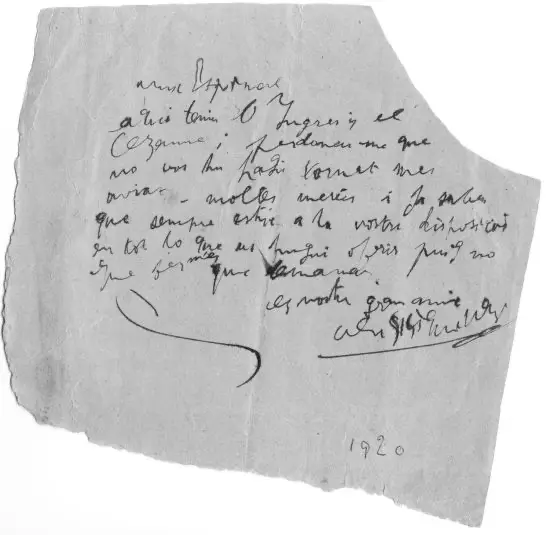 amic Espinal
aqui teniu l' Ingres i el
Cezanne; perdoneu-me que
no vos hu hagi tornat mes
aviat - moltes mercés i ja sabeu
que sempre estic a la vostra disposició
en tot lo que us pugui oferir puig no
que que demanar
es vostre gran amic
1920